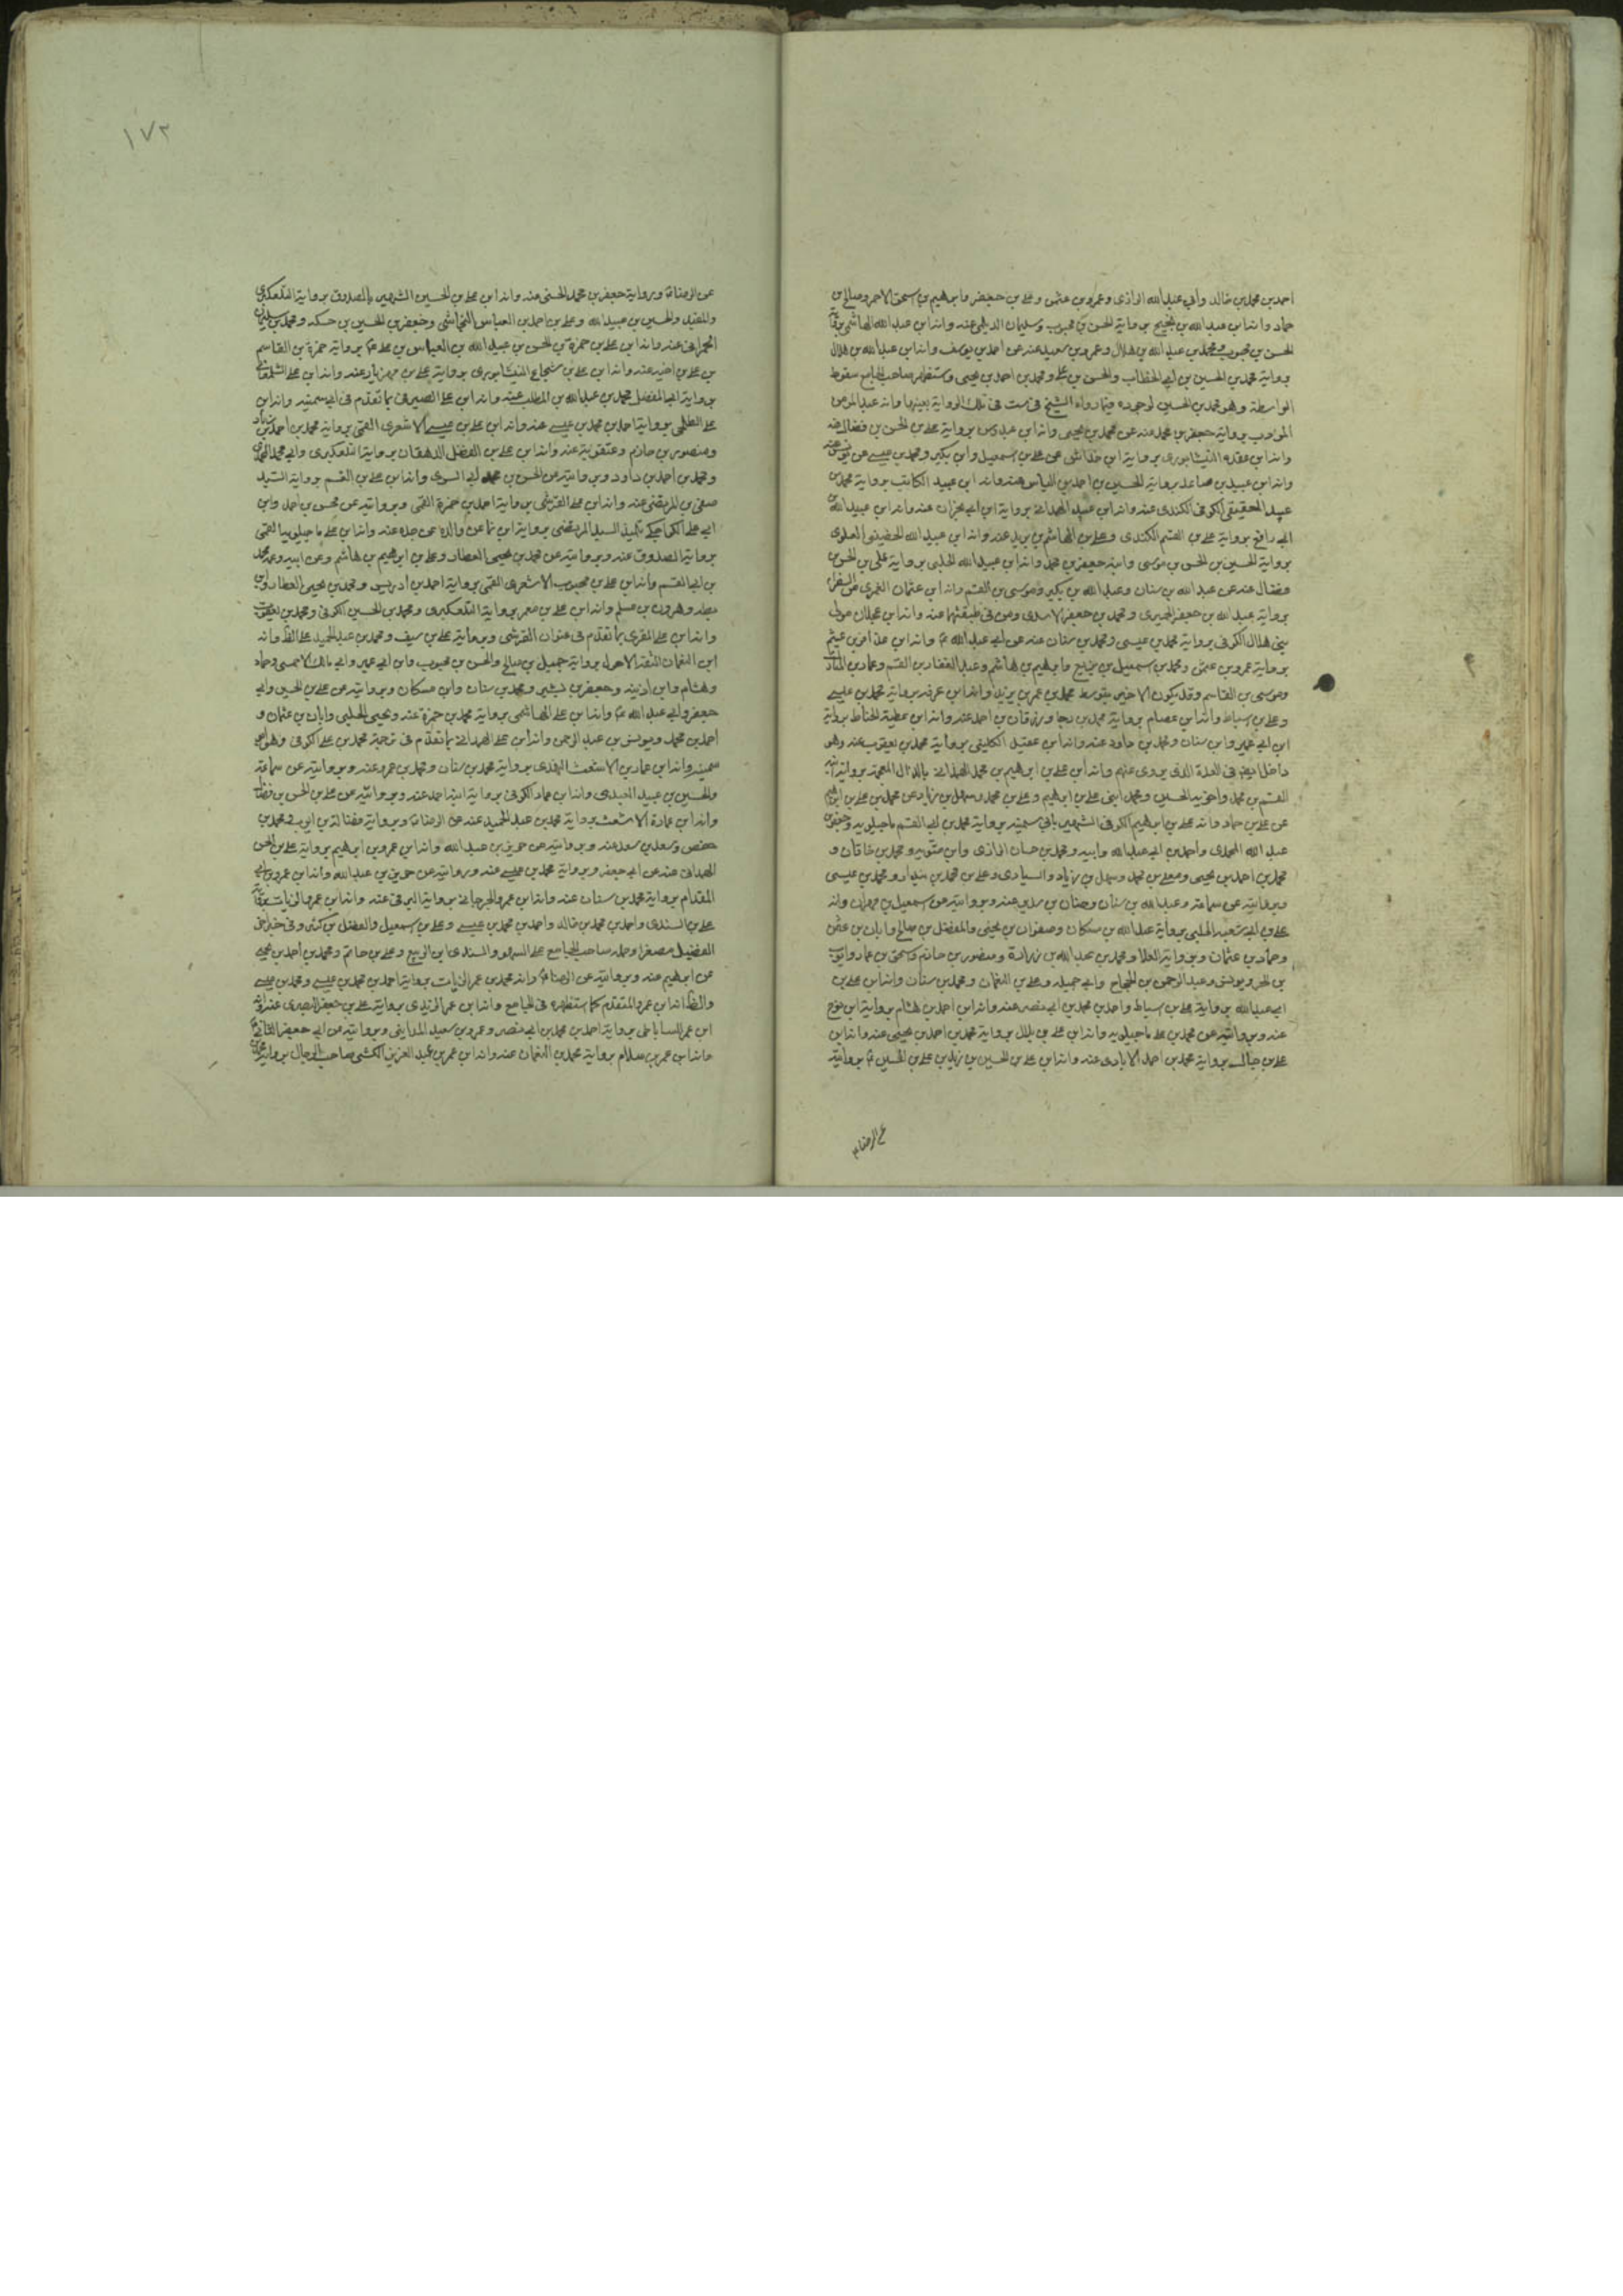 احمد بن محمد بن خالد وابي عبد الله الرازي وعمرو بن عثمن وعلي بن جعفر وابرهيم بن اسحق الاحمر وصالح بن
حماد وانه ابن عبد الله بن نجيح برواية الحسن بن محبوب وسليمان الديلمي عنه وانه ابن عبد الله الهاشمي
الحسن بن محبوب ومحمد بن عبد الله بن هلال وعمرو بن سعيد عنه عن احمد بن يوسف وانه ابن عبد الله بن هلال
برواية محمد بن الحسين بن ابي الخطاب والحسن بن علي ومحمد بن احمد بن يحيى واستظهر صاحب الجامع سقوط
الواسطة وهو محمد بن الحسين لوجوده فيما رواه الشيخ في ست في تلك الرواية بعينها وانه عبد المؤمن
المؤدب برواية جعفر بن محمد عنه عن محمد بن يحيى وانه ابن عبدوس برواية علي بن الحسن بن فضال عنه
وانه ابن عقدة النيشابوري برواية ابن عن علي بن اسمعيل وابن بكير ومحمد بن عيسى عن يونس عنه
وانه ابن عبيد بن صاعد برواية الحسين بن احمد بن الياس عنه وانه ابن عبيد الكاتب برواية محمد بن
عبيد الحقيقي الكوفي الكندي عنه وانه ابن عبيد الهمداني برواية ابن ابي نجران عنه وانه ابن عبيد الله بن
ابي رافع برواية علي بن القسم الكندي وعلي بن الهاشم بن بريد عنه وانه ابن عبيد الله الحسيني العلوي
برواية الحسين بن الحسن بن موسى وابنه جعفر بن محمد وانه ابن عبيد الله الحلبي برواية علي بن الحسن بن
فضال عنه عن عبد الله بن سنان وعبد الله بن بكير وموسى بن القسم وانه ابن عثمان العمري من السفراء
برواية عبد الله بن جعفر الحميري ومحمد بن جعفر الاسدي ومن في طبقتهما عنه وانه ابن عجلان مولى
بني هلال الكوفي برواية محمد بن عيسى ومحمد بن سنان عنه عن ابي عبد الله ع وانه ابن عذافر بن عيثم
برواية عمرو بن عثمن ومحمد بن اسمعيل بن بزيع وابرهيم بن هاشم وعبد الغفار بن القسم وعماد بن
وموسى بن القاسم وقد يكون الاخير بتوسط محمد بن عمر بن يزيد وانه ابن عرفة برواية محمد بن عيسى
وعلي بن اسباط وانه ابن عصام برواية محمد بن رجا وزرقان بن احمد عنه وانه ابن عطية الحناط برواية
ابن ابي عمير وابن سنان ومحمد بن داود عنه وانه ابن عقيل الكليني برواية محمد بن يعقوب عنه وهو
داخل ايضا في العدة الذي يروي عنهم وانه ابن علي بن ابرهيم بن محمد الهمذاني بالذال المعجمة برواية ابنه
القسم بن محمد واخويه الحسين ومحمد ابني علي بن ابرهيم وعلي بن محمد وسهل بن زياد عن محمد بن علي بن ابرهيم
عن علي بن حماد وانه علي بن ابرهيم الكوفي الشهير بابي سمينه برواية محمد بن ابي القسم ماجيلويه وجعفر بن
عبد الله المحمدي واحمد بن ابي عبد الله وابيه ومحمد بن حسان الرازي وابن متويه ومحمد بن خاقان و
محمد بن احمد بن يحيى ومعلى بن محمد وسهل بن زياد والسياري وعلي بن محمد بن بندار ومحمد بن عيسى
وبروايته عن سماعة وعبد الله بن سنان وحنان بن سدير عنه وبروايته عن اسمعيل بن مهران وانه
علي بن ابي شعبة الحلبي برواية عبد الله بن مسكان وصفوان بن يحيى والمفضل بن صالح وابان بن عثمن
وحماد بن عثمان وبرواية العلا ومحمد بن عبد الله بن زرارة ومنصور بن حازم واسحق بن عمار وايوب
بن الحر ويونس وعبد الرحمن بن الحجاج وابي جميله وعلي بن النعمان ومحمد بن سنان وانه ابن علي بن
ابي عبد الله برواية علي بن اسباط واحمد بن محمد بن ابي نصر عنه وانه ابن احمد بن هشام برواية ابن نوح
عنه وبروايته عن محمد بن علي ماجيلويه وانه ابن علي بن بلال برواية محمد بن احمد بن يحيى عنه وانه ابن
علي بن جالك برواية محمد بن احمد الايادي عنه وانه ابن علي بن الحسين بن زيد بن علي بن الحسين ع بروايته
عن الرضا ع
١٧٣
عن الرضا ع وبرواية جعفر بن محمد الحسني عنه وانه ابن علي بن الحسين الشهير بالصدوق برواية التلعكبري
والمفيد والحسين بن عبيد الله وعلي بن احمد بن العباس النجاشي وجعفر بن الحسين بن حسكه ومحمد بن سليمان
الحمراني عنه وانه ابن علي بن حمزة بن الحسن بن عبيد الله بن العباس بن علي ع برواية حمزة بن القاسم
بن علي بن اخيه عنه وانه ابن علي بن شجاع النيشابوري برواية علي بن مهزيار عنه وانه ابن علي الشلمغاني
برواية ابي المفضل محمد بن عبد الله بن المطلب عنه وانه ابن علي الصيرفي بما تقدم في ابي سمينه وانه ابن
علي الطلحي برواية احمد بن محمد بن عيسى عنه وانه ابن علي بن عيسى الاشعري القمي برواية محمد بن احمد بن
ومنصور بن حازم وعنه وانه ابن علي بن الفضل الدهقان برواية التلعكبري وابي محمد
ومحمد بن احمد بن داود وبروايته عن الحسن بن محمد ابي السري وانه ابن علي بن القسم برواية السيد
صفي بن المرتضى عنه وانه ابن علي القزيني برواية احمد بن حمزة القمي وبروايته عن محسن بن احمد وابن
ابي علي الكراجكي تلميذ السيد المرتضى برواية ابن نما عن والده عن جده عنه وانه ابن علي ماجيلويه القمي
برواية الصدوق عنه وبروايته عن محمد بن يحيى العطار وعلي بن ابرهيم بن هاشم وعن ابيه وعمه محمد
بن ابي القسم وانه ابن علي بن محبوب الاشعري القمي برواية احمد بن ادريس ومحمد بن يحيى العطار وابن
بطه وهرون بن مسلم وانه ابن علي بن معمر برواية التلعكبري ومحمد بن الحسين الكوفي ومحمد بن يعقوب
وانه ابن علي المقري بما تقدم في عنوان القرشي وبرواية علي بن سيف ومحمد بن عبد الحميد على الظ وانه
ابن النعمان الثقة الاحول برواية جميل بن صالح والحسن بن محبوب وابن ابي عمير وابي مالك الاحمسي وحماد
وهشام وابن اذينه وجعفر بن بشير ومحمد بن سنان وابن مسكان وبروايته عن علي بن الحسين وابي
جعفر وابي عبد الله ع وانه ابن علي الهاشمي برواية محمد بن حمزة عنه ويحيى الحلبي وابان بن عثمان و
احمد بن محمد ويونس بن عبد الرحمن وانه ابن علي الهمداني بما تقدم في ترجمة محمد بن علي الكوفي وهو ابو
سمينه وانه ابن عمار بن الاشعث النهدي برواية محمد بن سنان ومحمد بن عمرو عنه وبروايته عن سماعة
والحسين بن عبيد العبدي وانه ابن عماد الكوفي برواية ابنه احمد عنه وبروايته عن علي بن الحسن بن فضال
وانه ابن عمارة الاشعث برواية محمد بن عبد الحميد عنه عن الرضا ع وبرواية فضالة بن ايوب محمد بن
حفص وسعد بن سعد عنه وبروايته عن حريز بن عبد الله وانه ابن عمرو بن ابرهيم برواية علي بن الحسن
الهمداني عنه عن ابي جعفر وبرواية محمد بن عيسى عنه وبروايته عن حريز بن عبد الله وانه ابن عمرو بن ابي
المقدام برواية محمد بن سنان عنه وانه ابن عمرو الجرجاني برواية البرقي عنه وانه ابن عمرو الزيات
علي بن السندي واحمد بن محمد بن خالد واحمد بن محمد بن عيسى وعلي بن اسمعيل والفضل بن كثير وفي
الفضيل مصغرا وحمله صاحب الجامع على السهو والسندي ابن الربيع وعلي بن حاتم ومحمد بن احمد بن يحيى
عن ابرهيم عنه وبروايته عن الرضا ع وانه محمد بن عمر الزيات برواية احمد بن محمد بن عيسى ومحمد بن عيسى
والظ انه ابن عمرو المتقدم كما استظهره في الجامع وانه ابن عمر الزيدي برواية علي بن جعفر البصري عنه وانه
ابن عمر الساباطي برواية احمد بن محمد بن ابي نصر وعمرو بن سعيد المدايني وبروايته عن ابي جعفر الثاني ع
وانه ابن عمر بن سلام برواية محمد بن النعمان عنه وانه ابن عمر بن عبد العزيز الكشي صاحب الرجال برواية